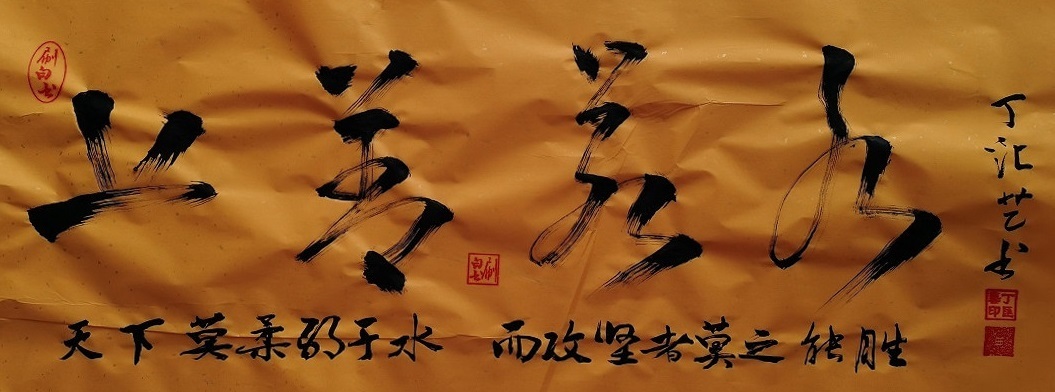 上善若水
天下莫柔弱于水 而攻坚者莫之能胜
丁 艺书